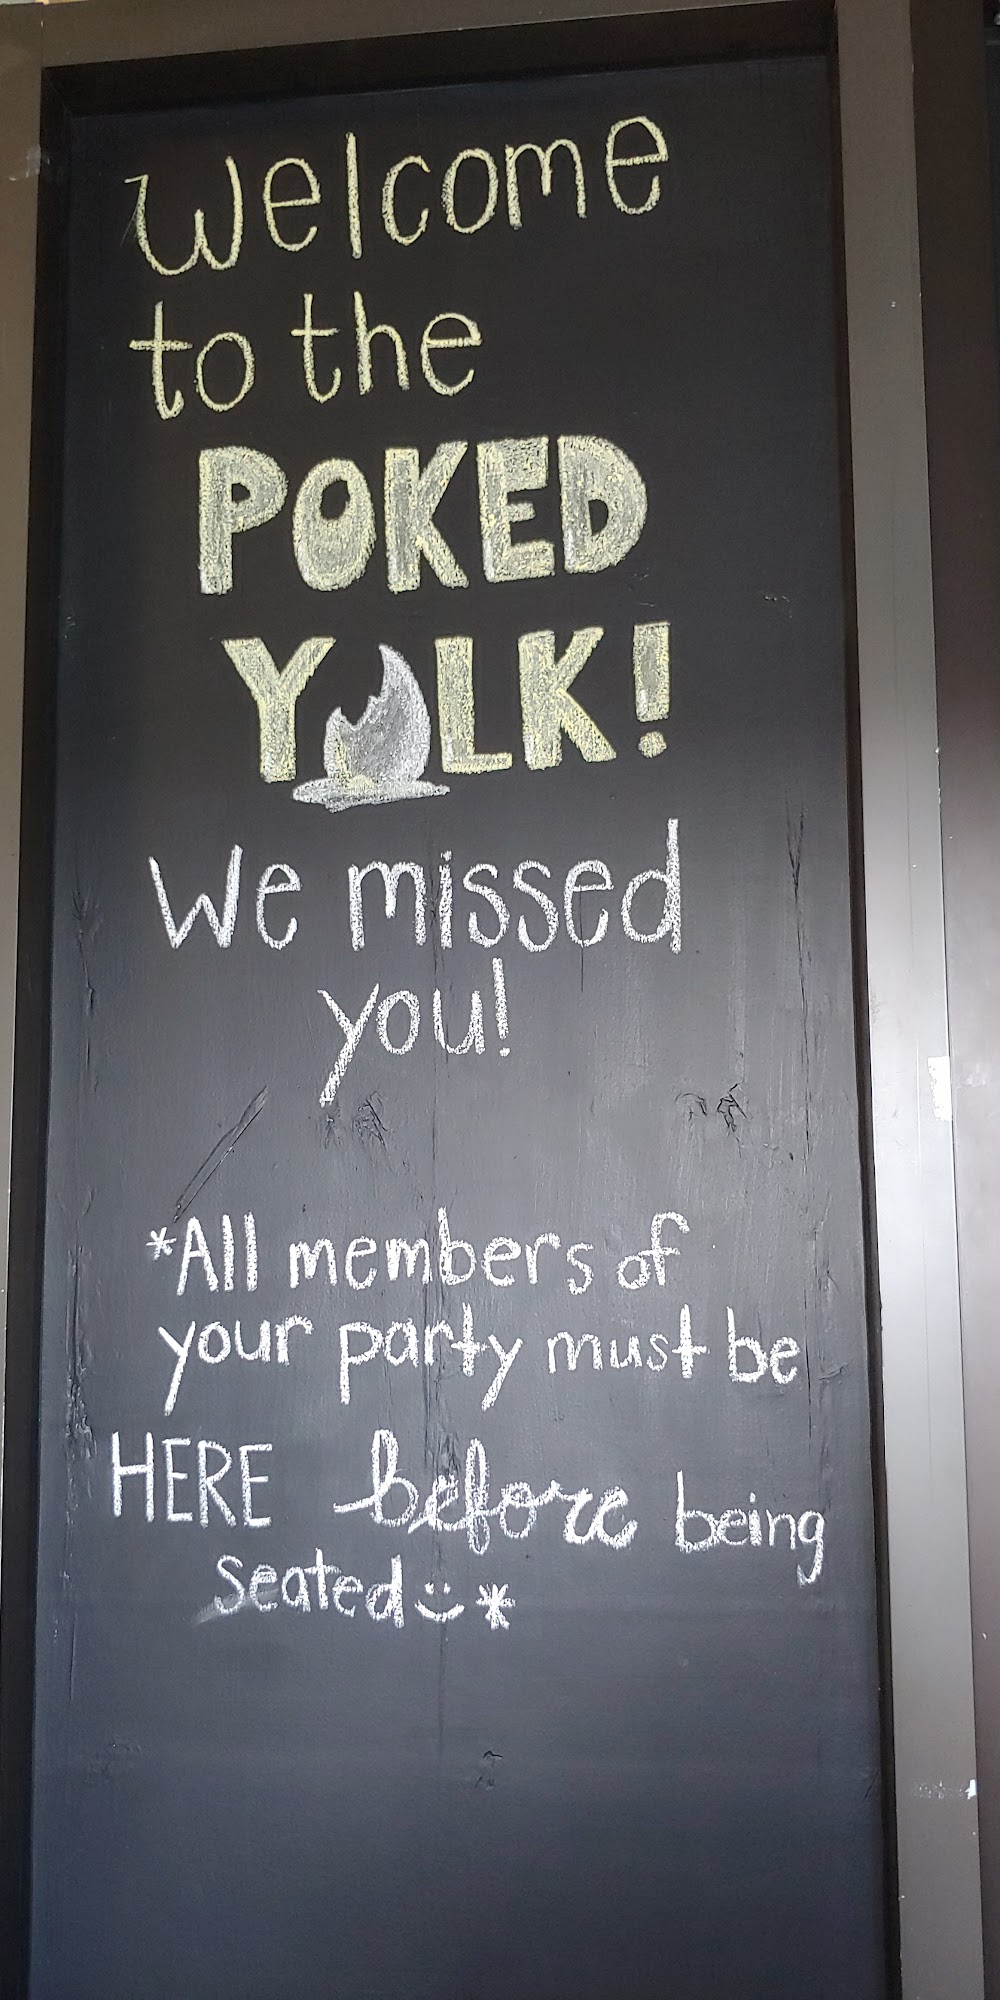 Welcome
to the
POKED
YOLK!
We missed
you!
*All members of
your party must be
HERE before being
seated :) *